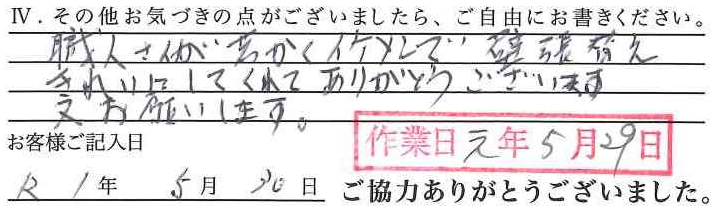 Ⅳ．その他お気づきの点がございましたら、ご自由にお書きください。
職人さんが若かくイケメンで 壁張替え
きれいにしてくれて ありがとうございます
又お願いします。
お客様ご記入日
作業日 元年 5月29日
R 1年 5月30日 ご協力ありがとうございました。